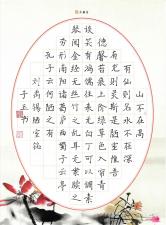 山不在高
有仙则名水不在深
有龙则灵斯是陋室惟吾
德馨苔痕上阶绿草色入帘青
谈笑有鸿儒往来无白丁可以调素
琴阅金经无丝竹之乱耳无案牍之
劳形南阳诸葛庐西蜀子云亭
孔子云何陋之有
刘禹锡陋室铭